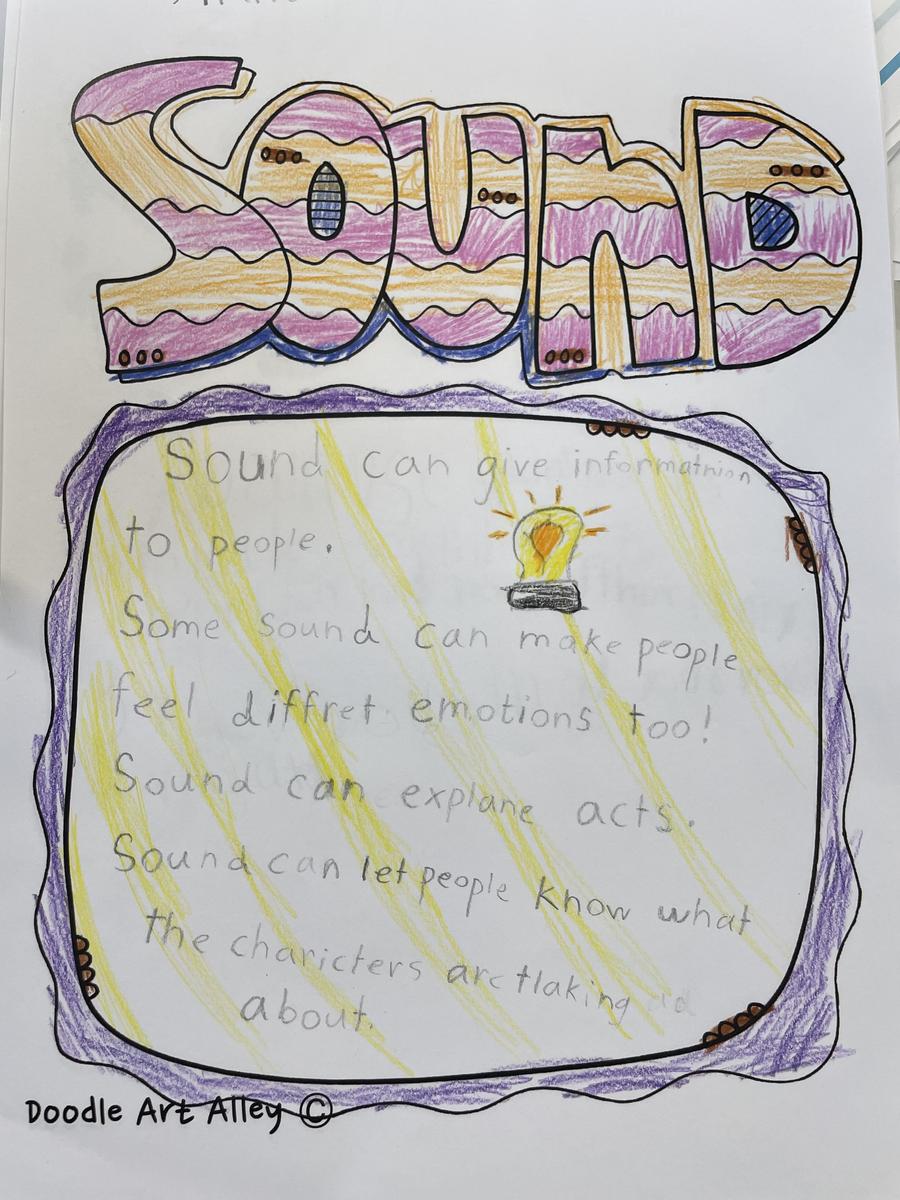 SOUND
Sound can give informatnion
to people.
Some sound can make people
feel diffret emotions too!
Sound can explane acts.
Sound can let people know what
the charicters are tlaking
about.
Doodle Art Alley ©